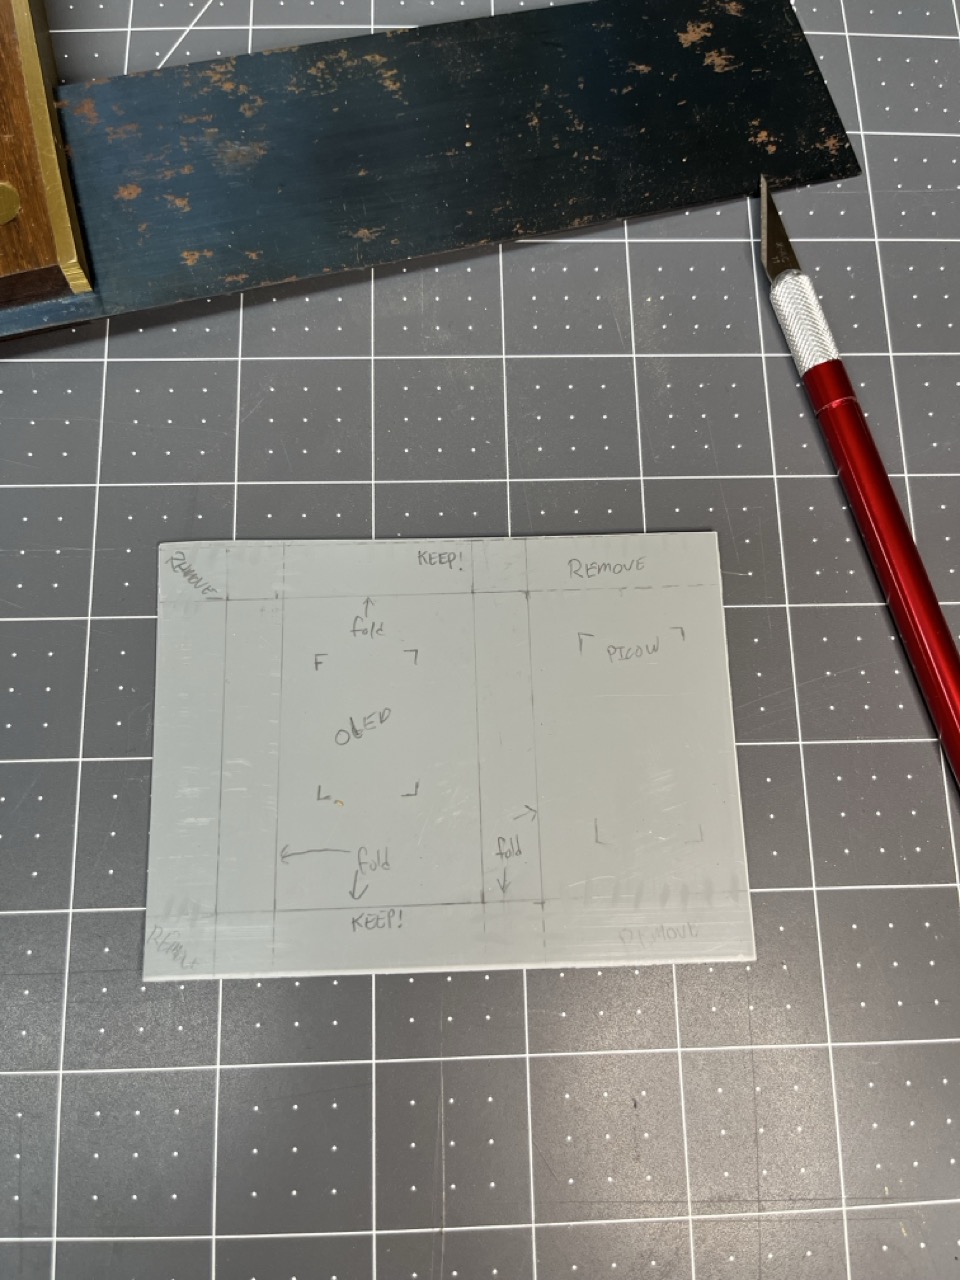 REMOVE
KEEP!
REMOVE
fold
PICOW
OLED
fold
fold
KEEP!
REMOVE
REMOVE